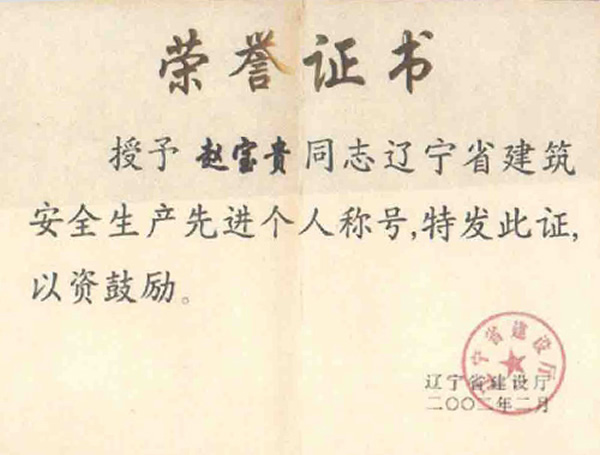 荣誉证书
授予 赵宝贵 同志辽宁省建筑
安全生产先进个人称号,特发此证,
以资鼓励。
辽宁省建设厅
辽宁省建设厅
二〇〇二年二月